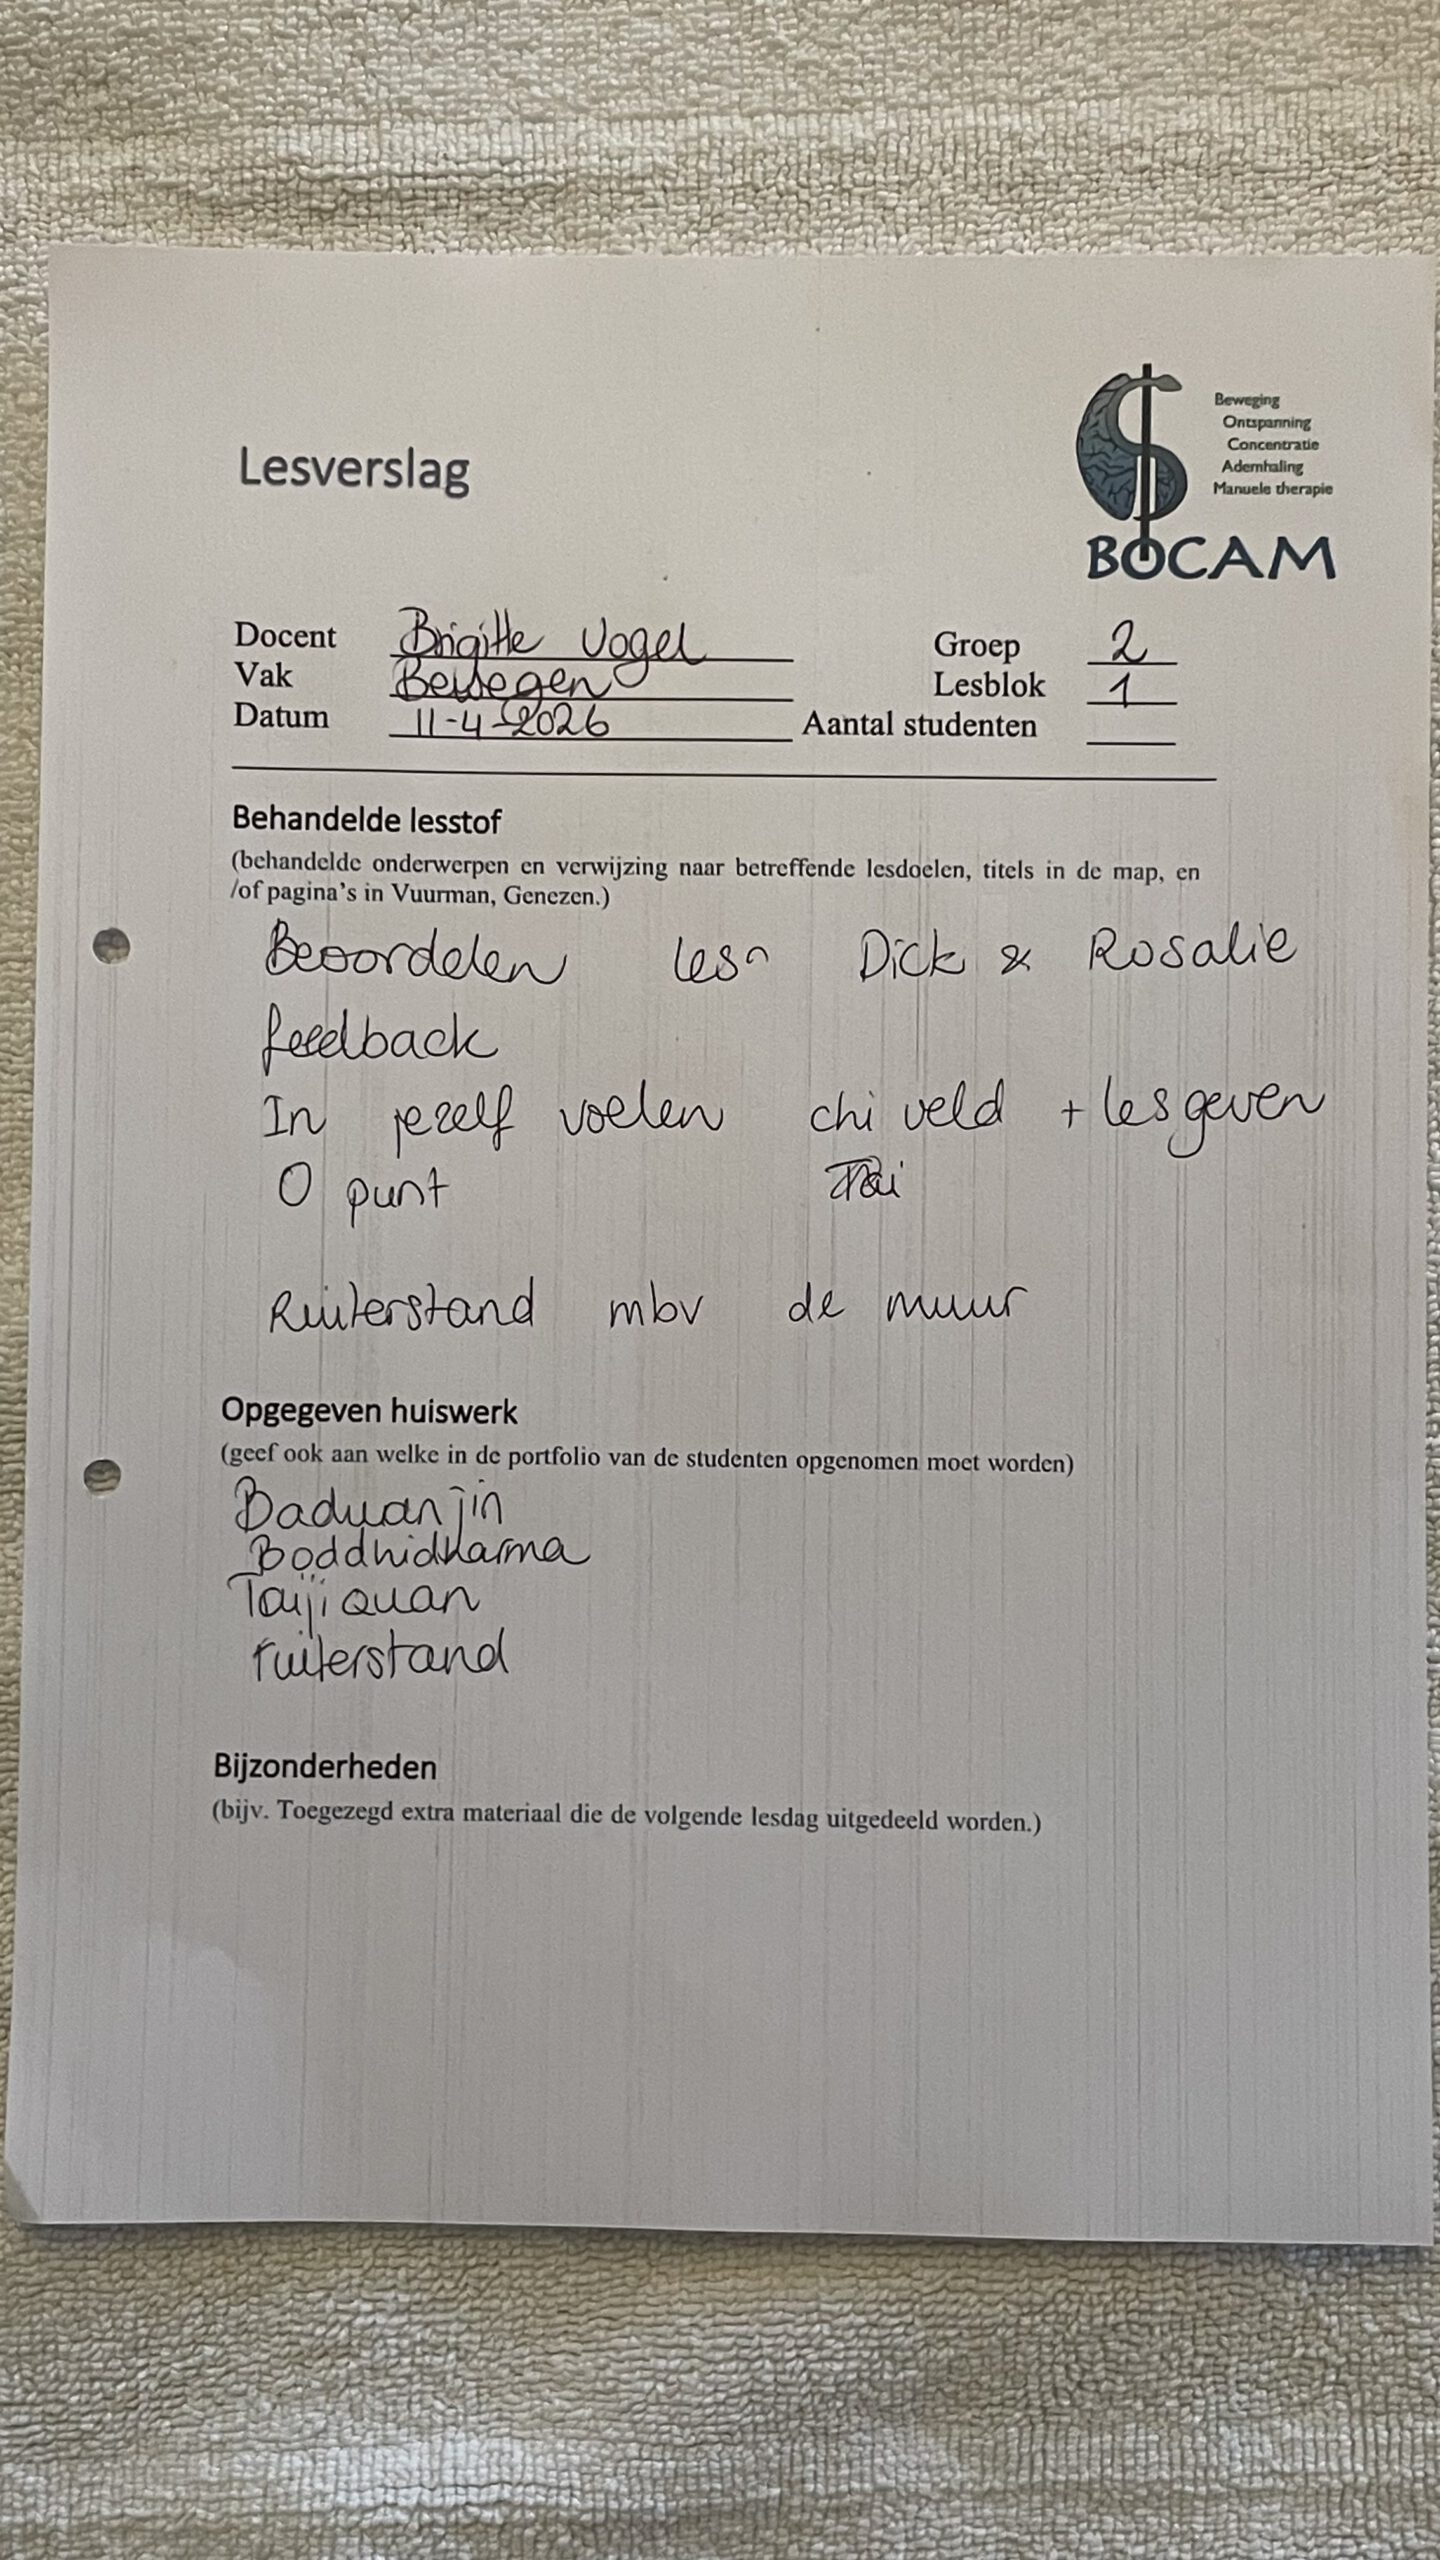 Beweging
Ontspanning
Concentratie
Ademhaling
Manuele therapie
BOCAM
Lesverslag
Docent Brigitte Vogel Groep 2
Vak Bewegen Lesblok 1
Datum 11-4-2026 Aantal studenten
Behandelde lesstof
(behandelde onderwerpen en verwijzing naar betreffende lesdoelen, titels in de map, en
/of pagina's in Vuurman, Genezen.)
Beoordelen les Dick & Rosalie
feedback
In jezelf voelen chi veld + lesgeven
O punt
Ruiterstand mbv de muur
Opgegeven huiswerk
(geef ook aan welke in de portfolio van de studenten opgenomen moet worden)
Baduanjin
Boddhidharma
Taijiquan
ruiterstand
Bijzonderheden
(bijv. Toegezegd extra materiaal die de volgende lesdag uitgedeeld worden.)